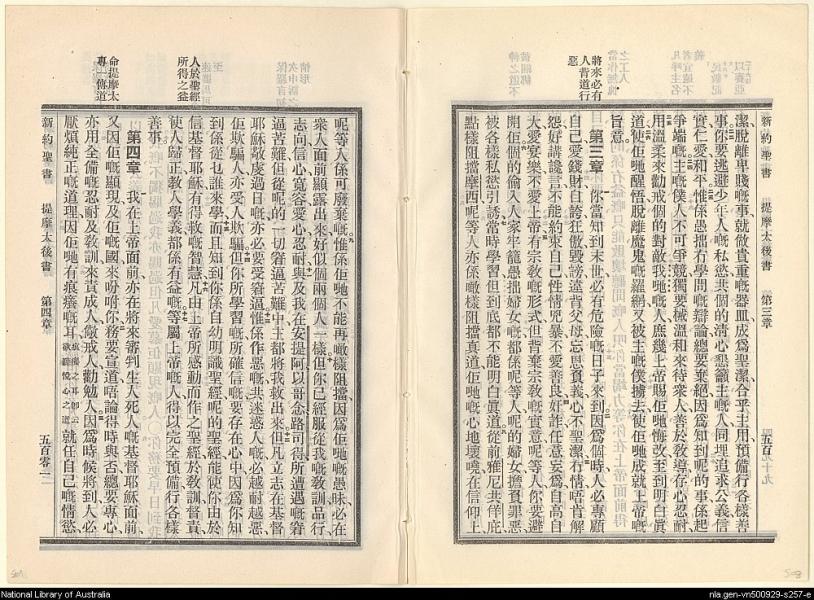 新約聖書 提摩太後書 第三章 五百
潔脫離卑賤嘅事就做貴重嘅器皿成爲聖潔合乎主用預備行各樣善
事你要逃避少年人嘅私慾共個的清心懇籲主嘅人同埋追求公義信
實仁愛和平惟係愚拙冇學問嘅辯論總要棄絕因爲知到呢的事係起
爭端嘅主嘅僕人不可爭競獨要 溫和來待衆人善於敎導存心忍耐
用溫柔來勸戒個的對敵我哋嘅人庶幾上帝賜佢哋悔改至到明白眞
道使佢哋醒悟脫離魔鬼嘅羅網又被主嘅僕擄去使佢哋成就上帝嘅
旨意
將來必有
人背道行
惡
第三章 你當知到末世必有危險嘅日子來到因爲個時人必專顧
自己愛錢財自誇狂傲毀謗違背父母忘恩負義心不聖潔冇情唔肯解
怨好講讒言不能約束自己性情兇暴不愛善良奸詐任意妄爲自高自
大愛宴樂不愛上帝有宗敎嘅形式但背棄宗敎嘅實意呢等人你要避
開佢個的偷入人家牢籠愚拙婦女嘅都係呢等人呢的婦女擔負罪惡
被各樣私慾引誘常時學習但到底都不能明白眞道從前雅尼共佯庇
點樣阻擋摩西呢等人亦係噉樣阻擋眞道佢哋嘅心地壞曉在信仰上
呢等人係可廢棄嘅惟係佢哋不能再噉樣阻擋因爲佢哋嘅愚昧必在
衆人面前顯露出來好似個兩個人一樣但你已經服從我嘅敎訓品行
志向信心寬容愛心忍耐與及我在安提阿以哥念路司得所遭遇嘅窘
逼苦難但從呢的一切窘逼苦難中主都將我救出來但凡立志在基督
耶穌敬虔過日嘅亦必要受窘逼惟係作惡嘅共迷惑人嘅必越耐越惡
佢欺騙人亦受人欺騙但你所學習嘅所確信嘅要存在心中因爲你知
到係從乜誰來學而且知到你係自幼明識聖經呢的聖經能使你由於
人於聖經
所得之益
信基督耶穌有得救嘅智慧凡由上帝所感動而作之聖經於敎訓督責
使人歸正敎人學義都係有益嘅等屬上帝嘅人得以完全預備行各樣
善事
命提摩太
專一傳道
第四章 我在上帝面前亦在將來審判生人死人嘅基督耶穌面前
又因佢嘅顯現及佢嘅國來吩咐你務要宣道唔論得時與否總要專心
亦用全備嘅忍耐及敎訓來責成人儆戒人勸勉人因爲時候將到人必
厭煩純正嘅道理因佢哋有痕癢嘅耳 就任自己嘅情慾
新約聖書 提摩太後書 第四章 五百零一
National Library of Australia
nla.gen-vn500929-s257-e